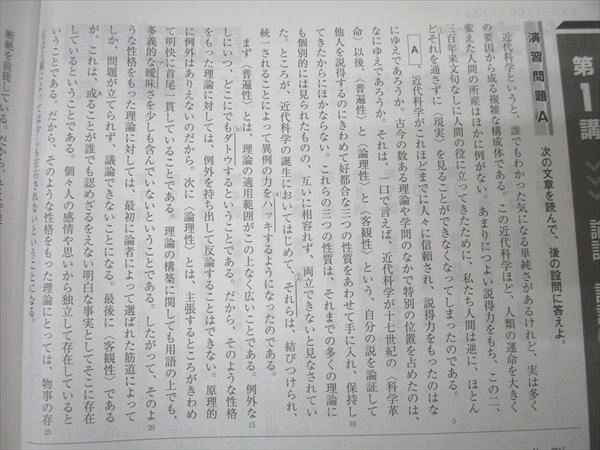 第1講
演習問題A 次の文章を読んで、後の設問に答えよ。
近代科学というと、誰でもわかった気になる単純さがあるけれど、実は多く
の要因から成る複雑な構成体である。この近代科学ほど、人類の運命を大きく
変えた人間の所産はほかに例がない。あまりにつよい説得力をもち、この二、
三百年来文句なしに人間の役に立ってきたために、私たち人間は逆に、ほとん
どそれを通さずに〈現実〉を見ることができなくなってしまったのである。
5
A、近代科学がこれほどまでに人々に信頼され、説得力をもったのはな
にゆえであろうか。古今の数ある理論や学問のなかで特別の位置を占めたのは、
なにゆえであろうか。それは、一口で言えば、近代科学が十七世紀の〈科学革
命〉以後、〈普遍性〉と〈論理性〉と〈客観性〉という、自分の説を論証して
他人を説得するのにきわめて好都合な三つの性質をあわせて手に入れ、保持し
10
てきたからにほかならない。これらの三つの性質は、それまでの多くの理論に
も個別的には見られたものの、互いに相容れず、両立できないと見なされてい
た。ところが、近代科学の誕生においてはじめて、それらは、結びつけられ、
統一されることによって異例の力をハッキするようになったのである。
まず〈普遍性〉とは、理論の適用範囲がこの上なく広いことである。例外な
15
しにいつ、どこにでもダトウするということである。だから、そのような性格
をもった理論に対しては、例外を持ち出して反論することはできない。原理的
に例外はありえないのだから。次に〈論理性〉とは、主張するところがきわめ
て明快に首尾一貫していることである。理論の構築に関しても用語の上でも、
多義的な曖昧さを少しも含んでいないということである。したがって、そのよ
20
うな性格をもった理論に対しては、最初に論者によって選ばれた筋道によって
しか、問題が立てられず、議論できないことになる。最後に〈客観性〉である
が、これは、或ることが誰でも認めざるをえない明白な事実としてそこに存在
しているということである。個々人の感情や思いから独立して存在していると
いうことである。だから、そのような性格をもった理論にとっては、物事の存
25